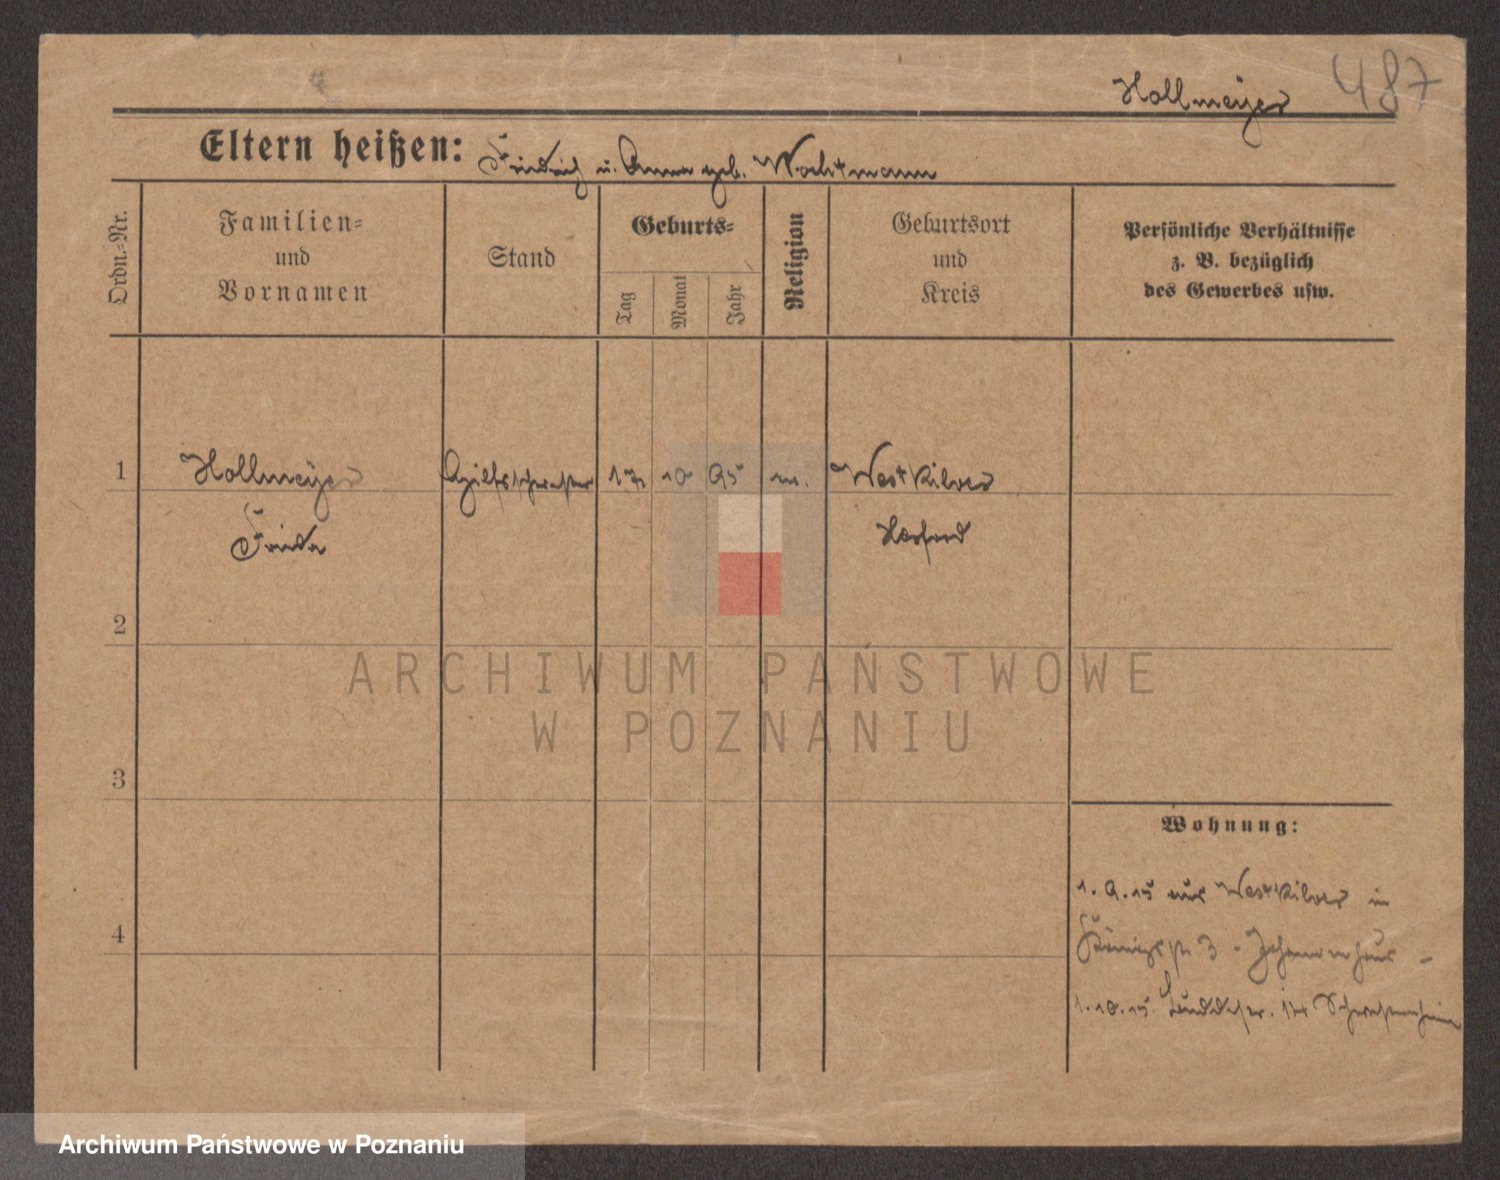 487
Hollmeyer
Eltern heißen: Friedrich u. Anna geb. Wachtmann
Ordn.-Nr.
Familien-
und
Vornamen
Stand
Geburts-
Tag
Monat
Jahr
Religion
Geburtsort
und
Kreis
Persönliche Verhältnisse
z. B. bezüglich
des Gewerbes usw.
1 Hollmeyer Hilfsschwester 17. 10 95 Westkilver
Frieda Herford
2
ARCHIWUM PAŃSTWOWE
W POZNANIU
3
Wohnung:
1. 9. 15 aus Westkilver in
4
Königstr 3
1. 10. 15. Schwesternheim
Archiwum Państwowe w Poznaniu